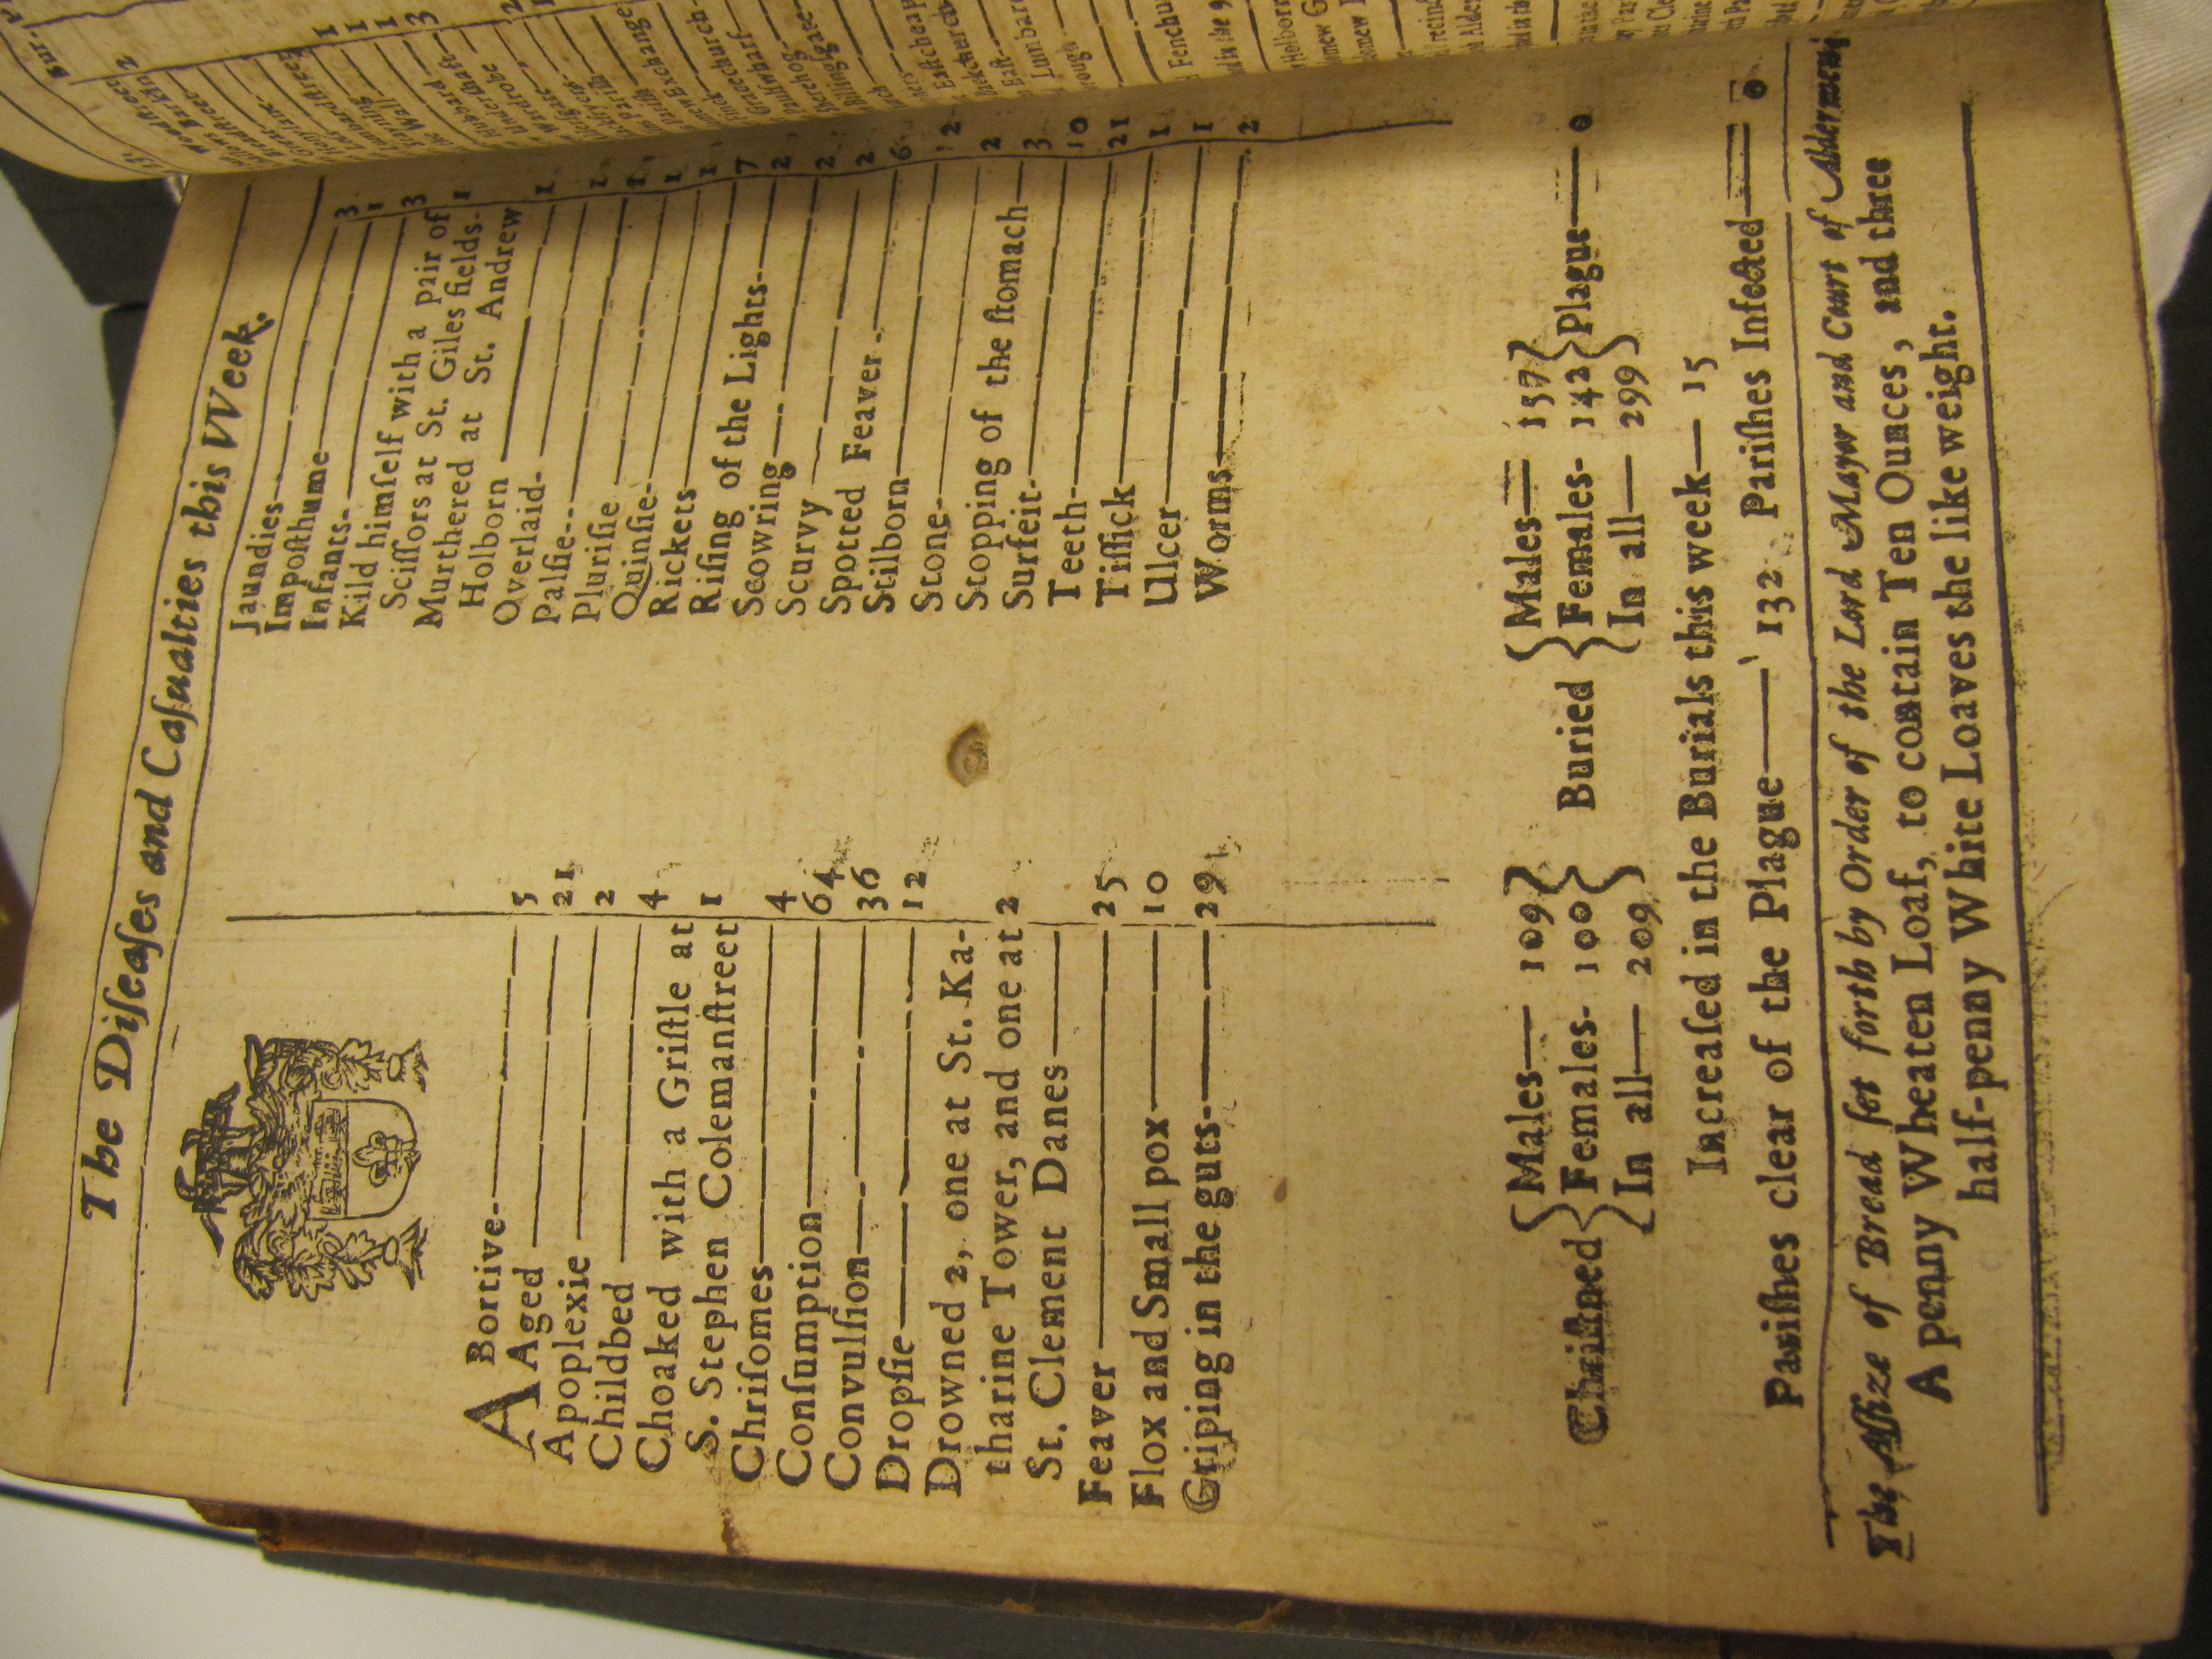 The Diſeaſes and Caſualties this Week.
ABortive 5
Aged 21
Apoplexie 2
Childbed 4
Choaked with a Griſtle at
S. Stephen Colemanſtreet 1
Chriſomes 4
Conſumption 64
Convulſion 36
Dropſie 12
Drowned 2, one at St. Ka-
tharine Tower, and one at
St. Clement Danes 2
Feaver 25
Flox and Small pox 10
Griping in the guts 29
Jaundies 3
Impoſthume 1
Infants 3
Kild himſelf with a pair of
Sciſſors at St. Giles fields- 1
Murthered at St. Andrew
Holborn 1
Overlaid 1
Palſie 1
Pluriſie 1
Quinſie 1
Rickets 7
Riſing of the Lights 2
Scowring 2
Scurvy 2
Spotted Feaver 6
Stilborn 12
Stone 2
Stopping of the ſtomach 3
Surfeit 10
Teeth 21
Tiſſick 1
Ulcer 1
Worms 2
Chriſtned { Males— 109 Females- 100 In all— 209 }
Buried { Males— 157 Females- 142 In all— 299 } Plague— 0
Increaſed in the Burials this week— 15
Pariſhes clear of the Plague— 132 Pariſhes Infected— 0
The Aſſize of Bread ſet forth by Order of the Lord Mayor and Court of Aldermen,
A penny Wheaten Loaf, to contain Ten Ounces, and three
half-penny White Loaves the like weight.